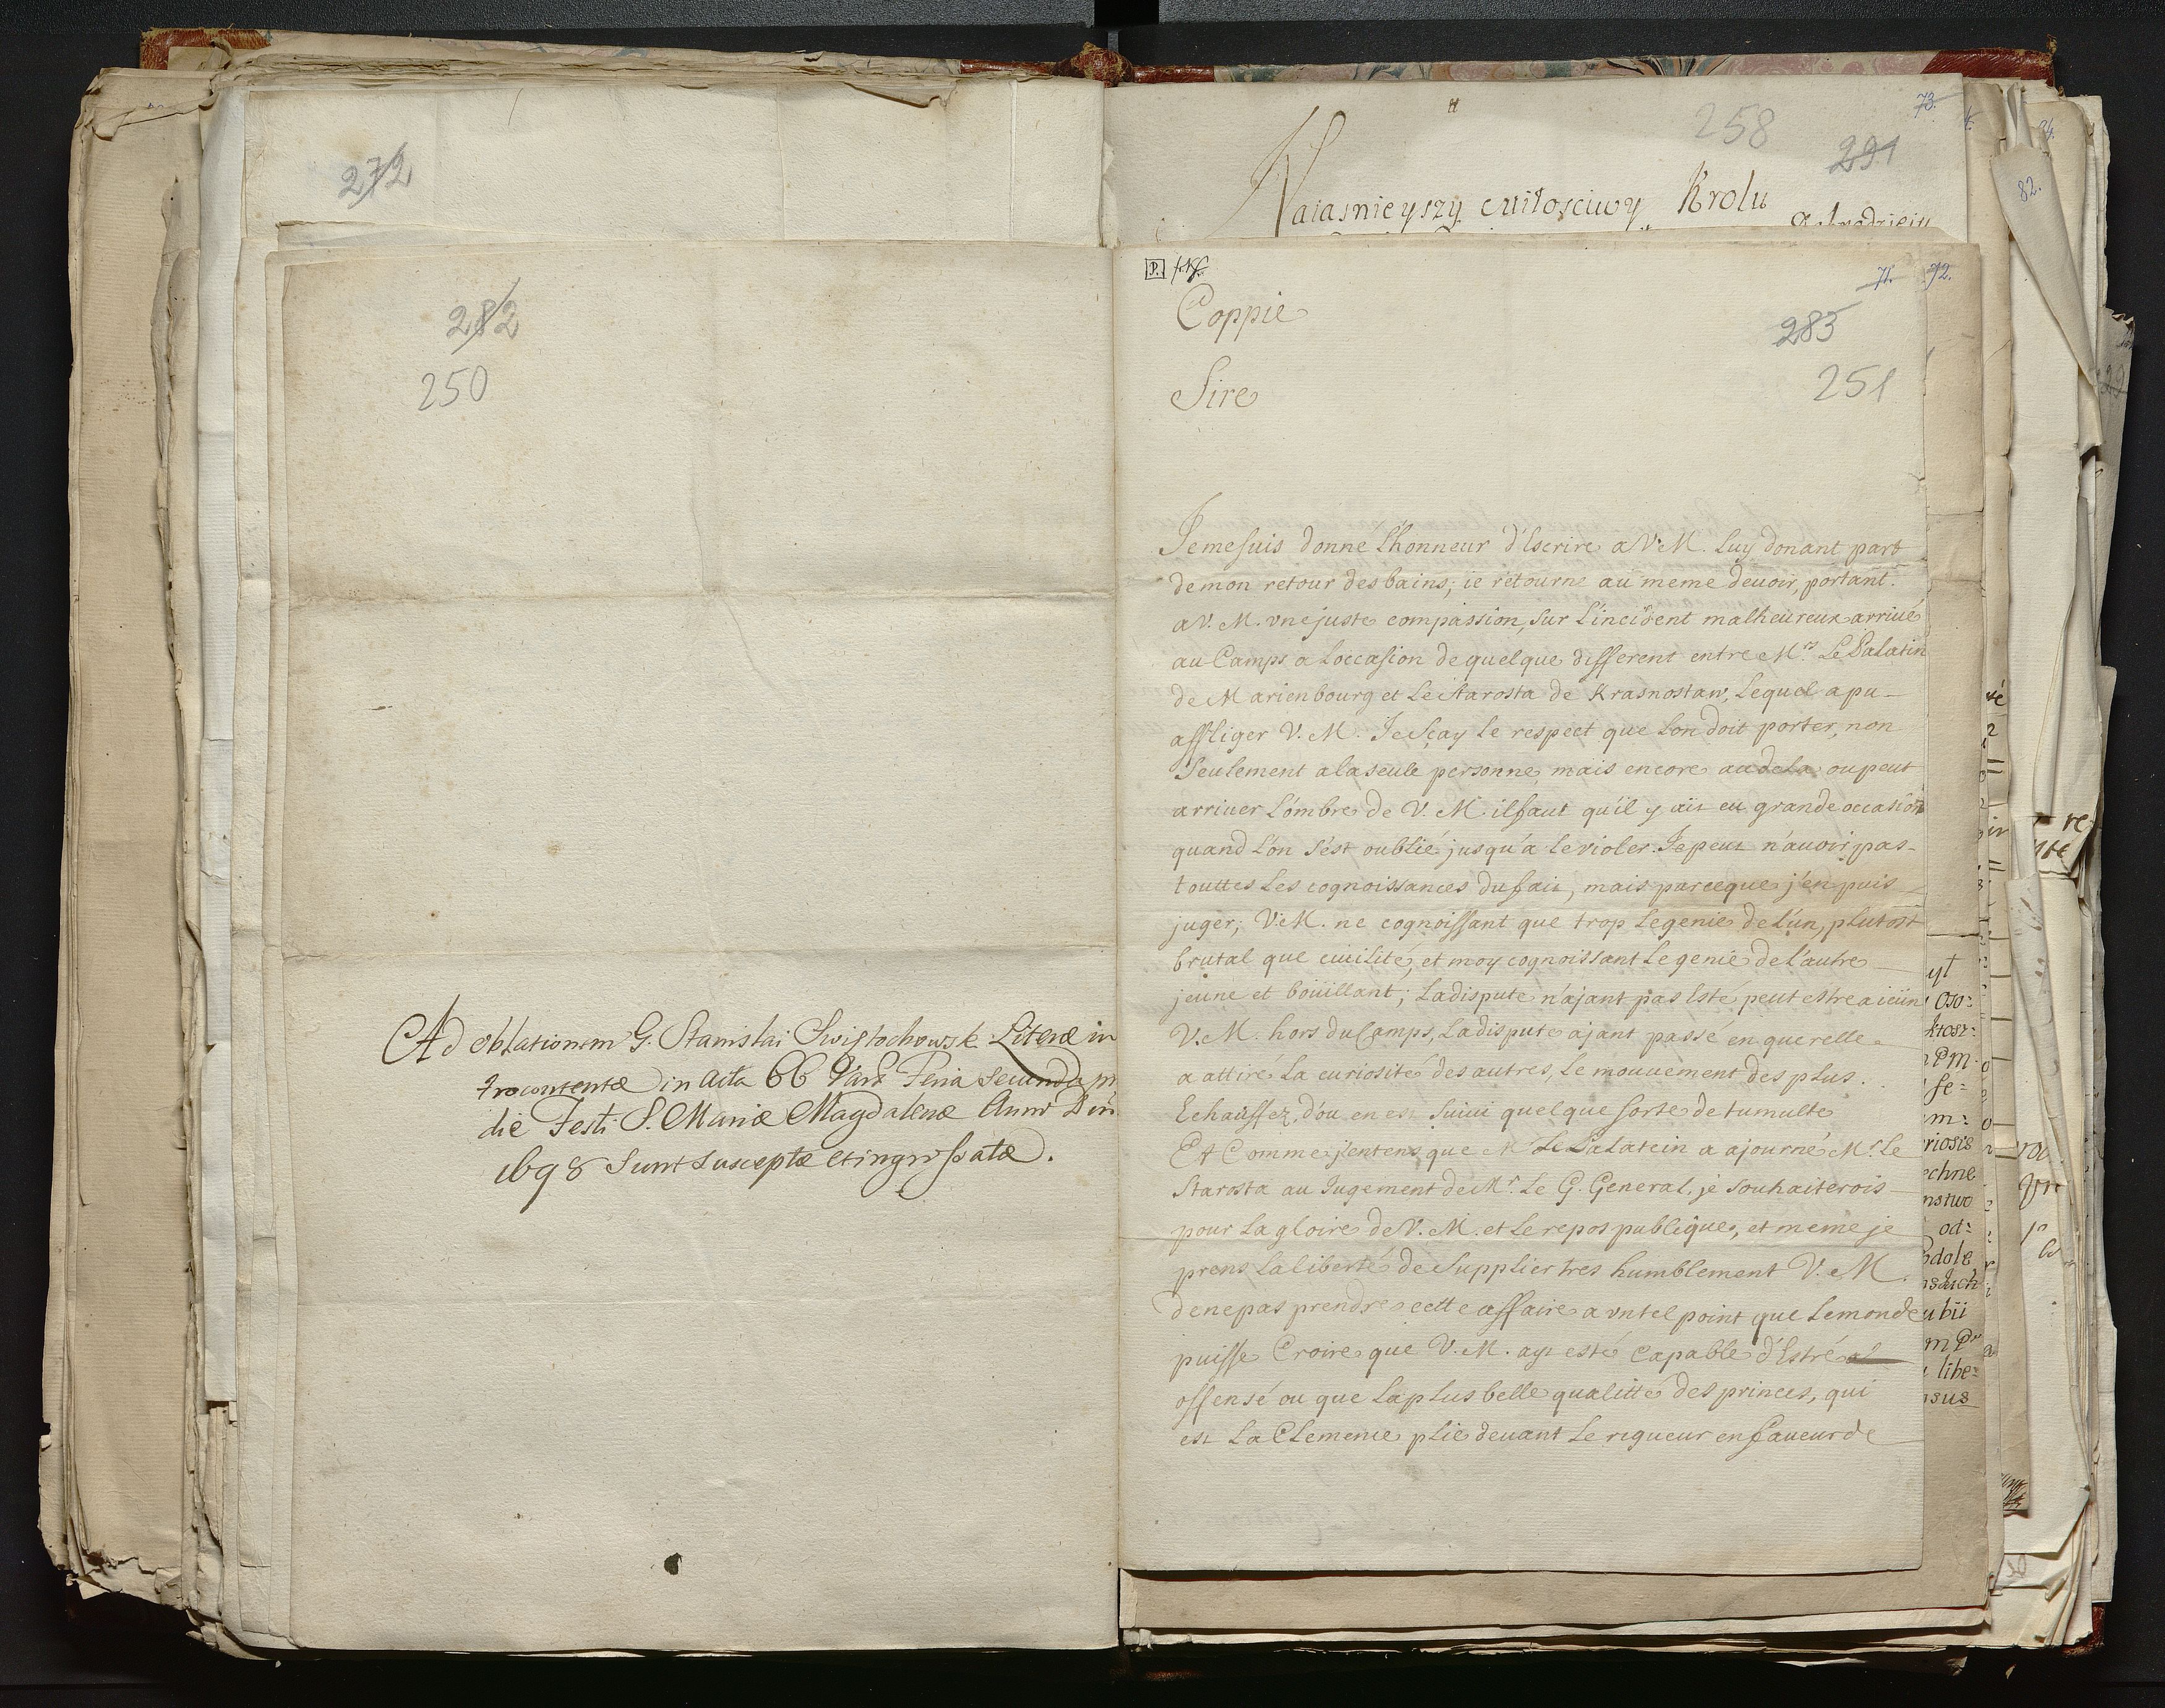 272
282
250
Ad oblationem G. Stanislai Swisłochowsk Literæ in
trocontentæ in Acta Feria secunda
die Festi S. Mariæ Magdalenæ Anno Din
1698 Sunt susceptæ et ingrossatæ.
258
73.
291
Naiasnieyszy Miłosciwy Krolu
P.
71. 72.
82.
Coppie
283
Sire
251
Je me suis donné L'honneur d'Escrire a V. M. Luy donant part
de mon retour des bains; ie retourne au meme devoir, portant
a V. M. vne juste compassion, sur L'incident malheureux arriué
au Camps a Loccasion de quelque different entre Mrs Le Palatin
de Marienbourg et Le Starosta de Krasnostaw, Lequel a pu
affliger V. M. Je sçay le respect que Lon doit porter, non
seulement a la seule personne, mais encore au dela ou peut
arriuer L'ombre de V. M. il faut qu'il y ait eu grande occasion
quand L'on s'est oublié jusqu'a Le violer. Je peut n'auoir pas
touttes Les cognoissances du fait, mais parceque j'en puis
juger; V. M. ne cognoissant que trop Le genie de L'un, plutost
brutal que ciuilité, et moy cognoissant Le genie de L'autre
jeune et boüillant; La dispute n'ajant pas Esté peut estre a ieun
V. M. hors du Camps, La dispute ajant passé en querelle
a attiré La curiosité des autres, Le mouuement des plus
Echauffez, d'ou en est suiui quelque sorte de tumulte
Et Comme j'entens que Mr Le Palatein a ajourné Mr. Le
Starosta au Jugement de Mr. Le G. General, je souhaiterois
pour La gloire de V. M. et Le repos publique, et meme je
prens La liberté de Supplier tres humblement V. M.
de ne pas prendre cette affaire a vn tel point que Le monde
puisse Croire que V. M. ayt esté Capable d'Estre
offensé ou que La plus belle qualitté des princes, qui
est La Clemence plie deuant Le rigueur en faueur de